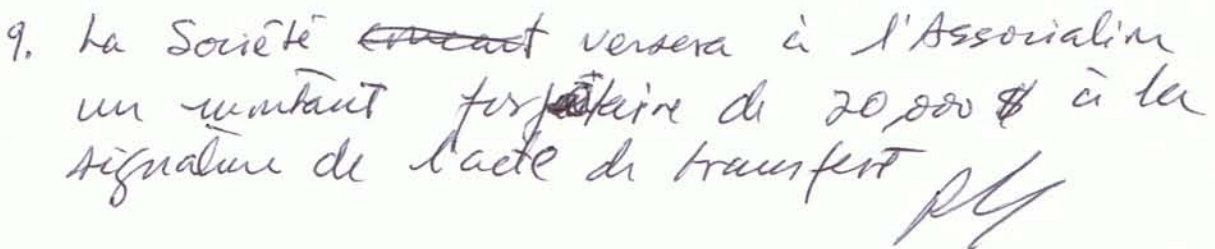 9. La Société versera à l'Association
un montant forfaitaire de 20,000 $ à la
signature de l'acte de transfert